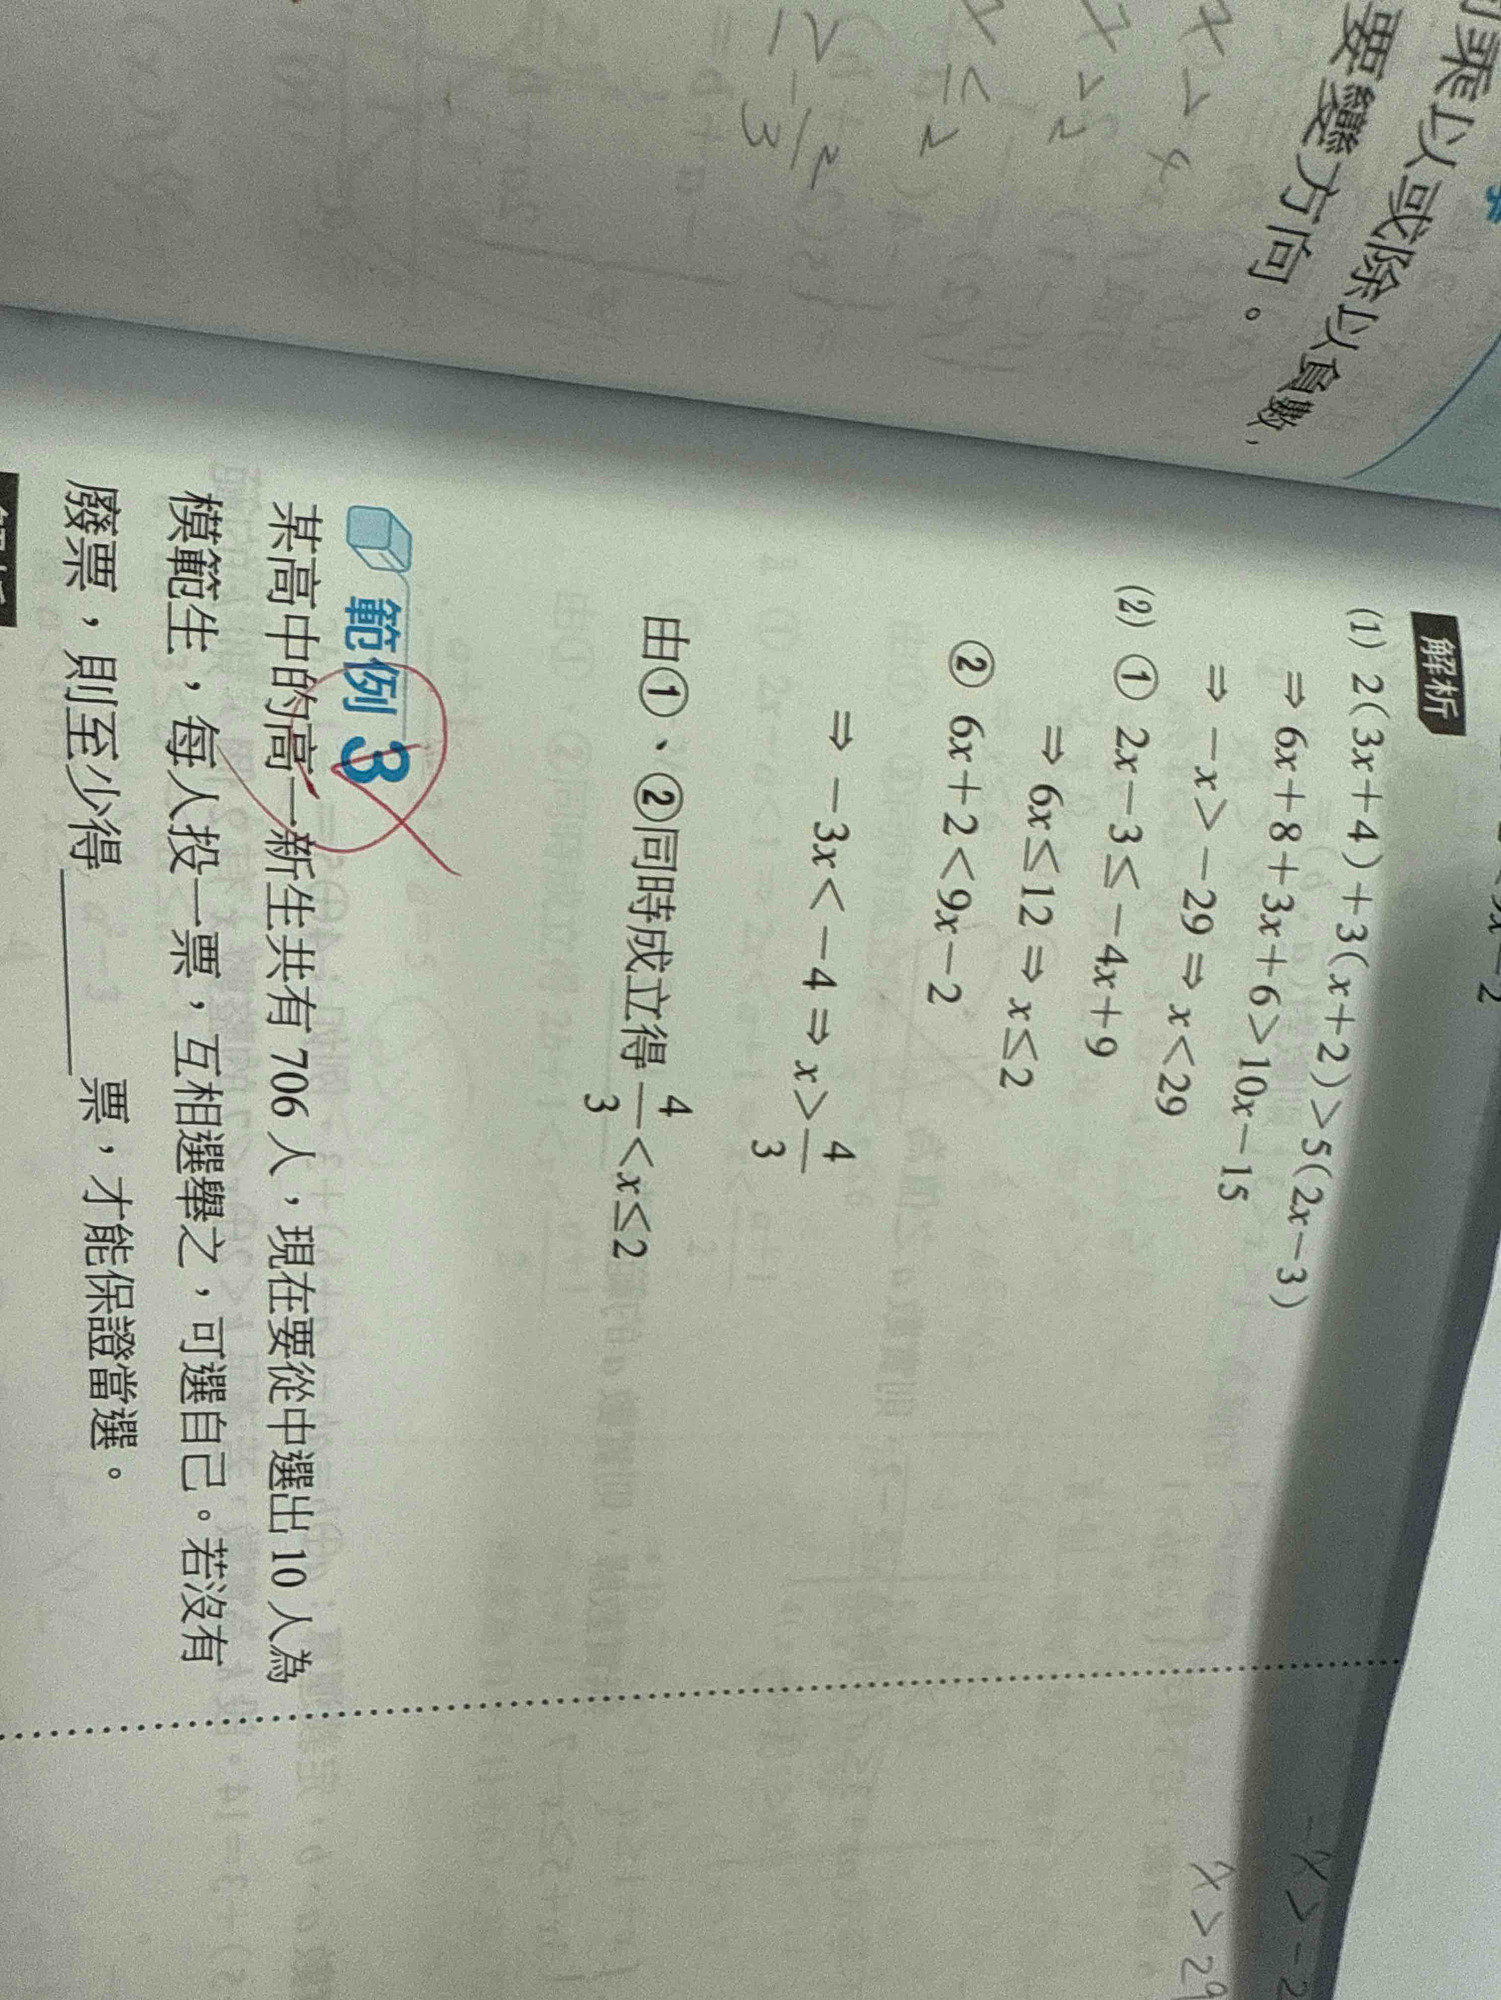 乘以或除以負數,
要變方向。
x > 4
x > 2
x ≤ 2
解析
(1) 2(3x+4)+3(x+2)>5(2x-3)
⇒ 6x+8+3x+6>10x-15
⇒ -x>-29 ⇒ x<29
(2) ① 2x-3≤-4x+9
⇒ 6x≤12 ⇒ x≤2
② 6x+2<9x-2
⇒ -3x<-4 ⇒ x>4/3
由①、②同時成立得 4/3<x≤2
範例 3
某高中的高一新生共有 706 人,現在要從中選出 10 人為
模範生,每人投一票,互相選舉之,可選自己。若沒有
廢票,則至少得______票,才能保證當選。
-x > -2
x > 29